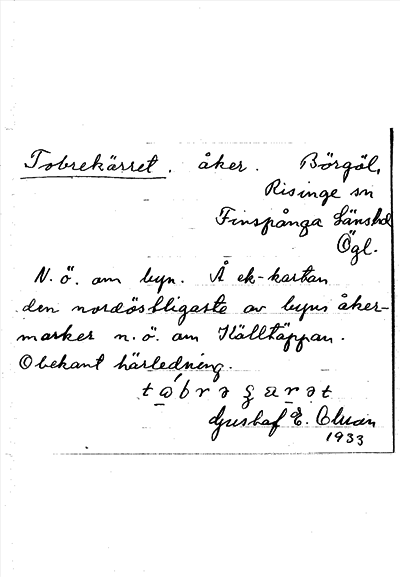 Tobrekärret. åker. Börgöl,
Risinge sn
Finspånga Länshd
Ögl.
N. ö. om byn. Å ek-kartan
den nordöstligaste av byns åker-
marker n. ö. om Källtäppan.
Obekant härledning.
Gustaf E. Olsson
1933